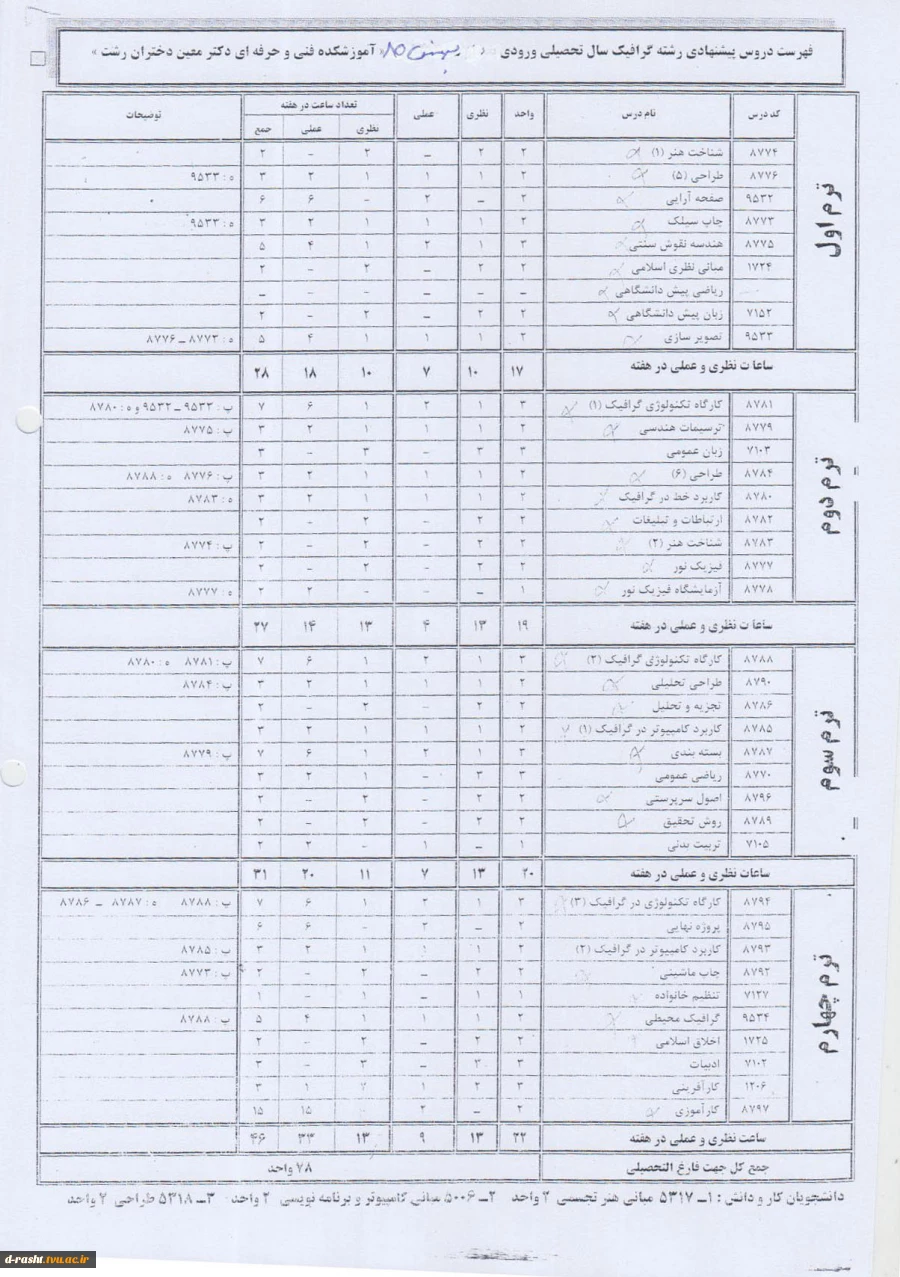 فهرست دروس پیشنهادی رشته گرافیک سال تحصیلی ورودی بهمن ۸۵ آموزشکده فنی و حرفه ای دکتر معین دختران رشت »
ترم اول
کد درس نام درس واحد نظری عملی تعداد ساعت در هفته توضیحات
نظری عملی جمع
۸۷۷۴ شناخت هنر (۱) ۲ ۲ – ۲ – ۲
۸۷۷۶ طراحی (۵) ۲ ۱ ۱ ۱ ۲ ۳ ه : ۹۵۳۳
۹۵۳۲ صفحه آرایی ۲ – ۲ - ۶ ۶
۸۷۷۳ چاپ سیلک ۲ ۱ ۱ ۱ ۲ ۳ ه : ۹۵۳۳
۸۷۷۵ هندسه نقوش سنتی ۳ ۱ ۲ ۱ ۴ ۵
۱۷۲۴ مبانی نظری اسلامی ۲ ۲ – ۲ – ۲
ریاضی پیش دانشگاهی – – – - – –
۷۱۵۲ زبان پیش دانشگاهی ۲ ۲ – ۲ – ۲
۹۵۳۳ تصویر سازی ۲ ۱ ۱ ۱ ۴ ۵ ه : ۸۷۷۳ – ۸۷۷۶
ساعات نظری و عملی در هفته ۱۷ ۱۰ ۷ ۱۰ ۱۸ ۲۸
ترم دوم
۸۷۸۱ کارگاه تکنولوژی گرافیک (۱) ۳ ۱ ۲ ۱ ۶ ۷ پ : ۹۵۳۳ – ۹۵۳۲ و ه : ۸۷۸۰
۸۷۷۹ ترسیمات هندسی ۲ ۱ ۱ ۱ ۲ ۳ پ : ۸۷۷۵
۷۱۰۳ زبان عمومی ۳ ۳ - ۳ - ۳
۸۷۸۴ طراحی (۶) ۲ ۱ ۱ ۱ ۲ ۳ پ : ۸۷۷۶ ه : ۸۷۸۸
۸۷۸۰ کاربرد خط در گرافیک ۲ ۱ ۱ ۱ ۲ ۳ ه : ۸۷۸۳
۸۷۸۲ ارتباطات و تبلیغات ۲ ۲ - ۲ - ۲
۸۷۸۳ شناخت هنر (۲) ۲ ۲ - ۲ - ۲ پ : ۸۷۷۴
۸۷۷۷ فیزیک نور ۲ ۲ - ۲ - ۲
۸۷۷۸ آزمایشگاه فیزیک نور ۱ – ۱ - ۲ ۲ ه : ۸۷۷۷
ساعات نظری و عملی در هفته ۱۹ ۱۳ ۴ ۱۳ ۱۴ ۲۷
ترم سوم
۸۷۸۸ کارگاه تکنولوژی گرافیک (۲) ۳ ۱ ۲ ۱ ۶ ۷ پ : ۸۷۸۱ ه : ۸۷۸۰
۸۷۹۰ طراحی تحلیلی ۲ ۱ ۱ ۱ ۲ ۳ پ : ۸۷۸۴
۸۷۸۶ تجزیه و تحلیل ۲ ۲ - ۲ - ۲
۸۷۸۵ کاربرد کامپیوتر در گرافیک (۱) ۲ ۱ ۱ ۱ ۲ ۳
۸۷۸۷ بسته بندی ۳ ۱ ۲ ۱ ۶ ۷ پ : ۸۷۷۹
۸۷۷۰ ریاضی عمومی ۳ ۳ - ۱ ۲ ۳
۸۷۹۶ اصول سرپرستی ۲ ۲ - ۲ - ۲
۸۷۸۹ روش تحقیق ۲ ۲ - ۲ - ۲
۷۱۰۵ تربیت بدنی ۱ – ۱ - ۲ ۲
ساعات نظری و عملی در هفته ۲۰ ۱۳ ۷ ۱۱ ۲۰ ۳۱
ترم چهارم
۸۷۹۴ کارگاه تکنولوژی در گرافیک (۳) ۳ ۱ ۲ ۱ ۶ ۷ پ : ۸۷۸۸ ه : ۸۷۸۷ – ۸۷۸۶
۸۷۹۵ پروژه نهایی ۲ – ۲ - ۶ ۶
۸۷۹۳ کاربرد کامپیوتر در گرافیک (۲) ۲ ۱ ۱ ۱ ۲ ۳ پ : ۸۷۸۵
۸۷۹۲ چاپ ماشینی ۲ ۲ – ۲ - ۲ پ : ۸۷۷۳
۷۱۲۷ تنظیم خانواده ۱ ۱ – ۱ - ۱
۹۵۳۴ گرافیک محیطی ۲ ۱ ۱ ۱ ۴ ۵ پ : ۸۷۸۸
۱۷۲۵ اخلاق اسلامی ۲ ۲ – ۲ - ۲
۷۱۰۲ ادبیات ۳ ۳ – ۳ - ۳
۱۲۰۶ کارآفرینی ۳ ۲ ۱ ۲ ۱ ۳
۸۷۹۷ کارآموزی ۲ – ۲ ۱۵ ۱۵
ساعت نظری و عملی در هفته ۲۲ ۱۳ ۹ ۱۳ ۳۳ ۴۶
جمع کل جهت فارغ التحصیلی ۷۸ واحد
دانشجویان کار و دانش : ۱ـ ۵۳۱۷ مبانی هنر تجسمی ۲ واحد ۲ـ ۵۰۰۶ مبانی کامپیوتر و برنامه نویسی ۲ واحد ۳ـ ۵۳۱۸ طراحی ۲ واحد
d-rasht.tvu.ac.ir